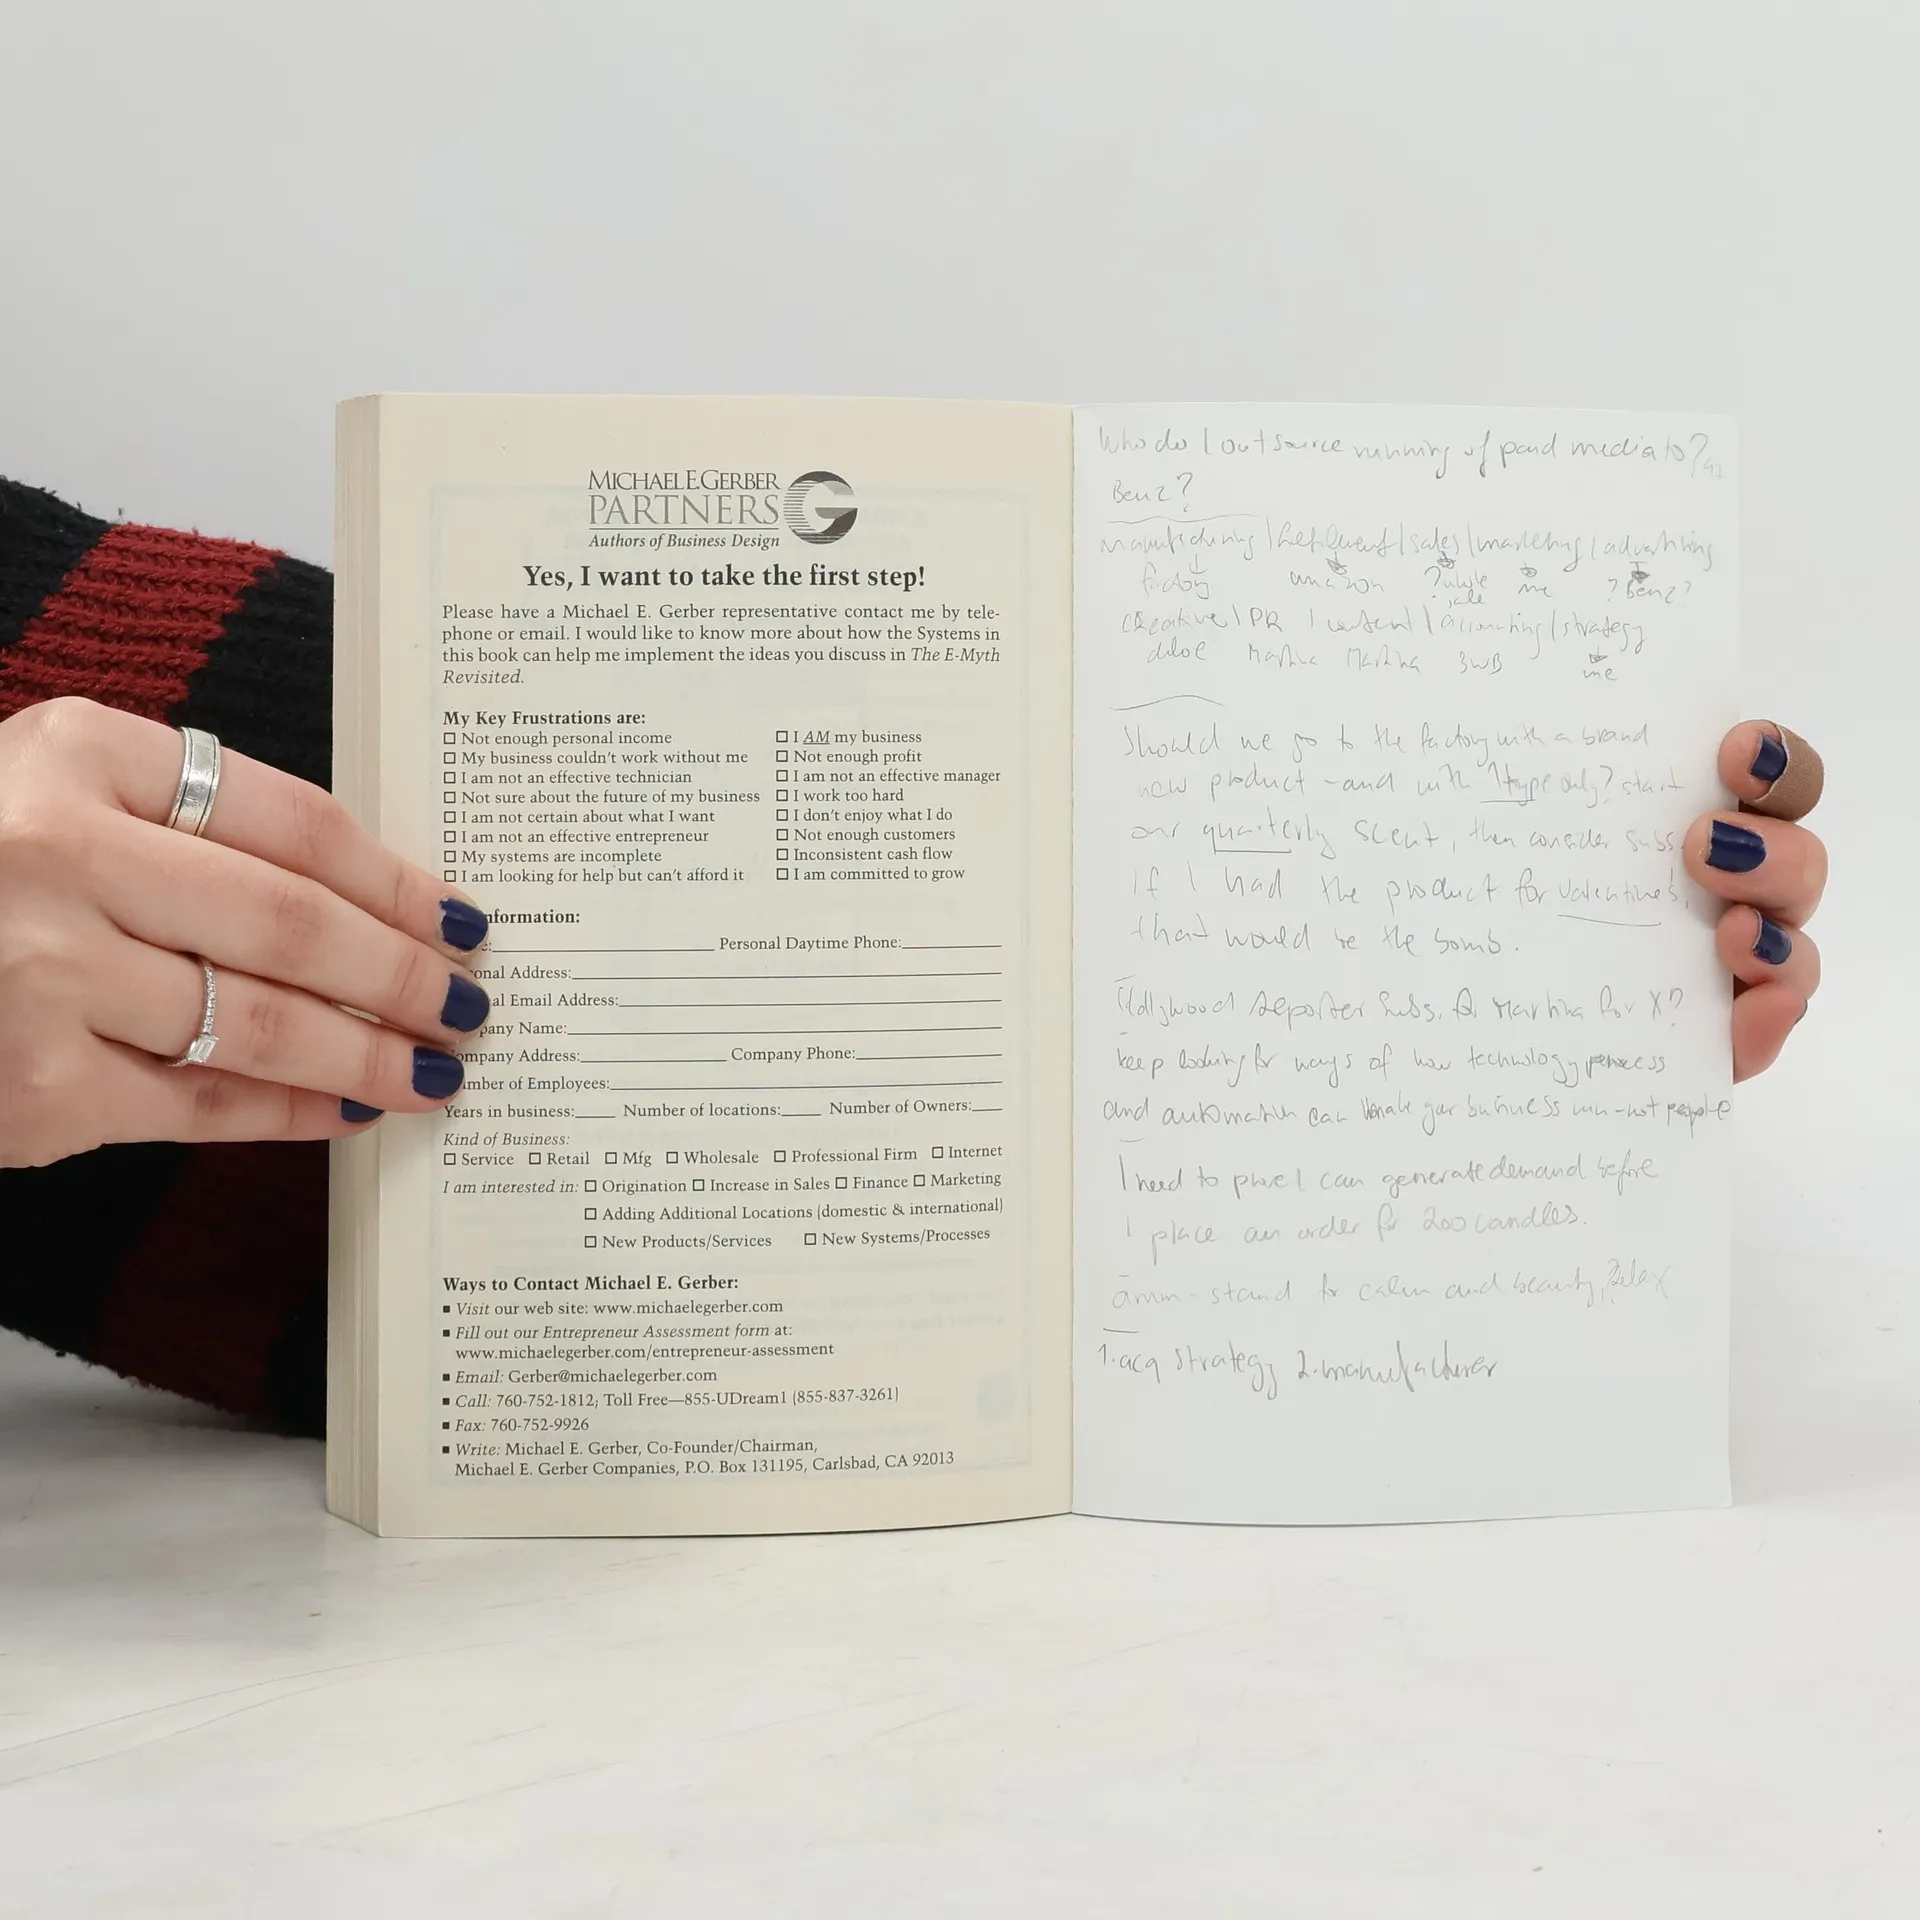 MICHAEL E. GERBER
PARTNERS
Authors of Business Design
Yes, I want to take the first step!
Please have a Michael E. Gerber representative contact me by tele-
phone or email. I would like to know more about how the Systems in
this book can help me implement the ideas you discuss in The E-Myth
Revisited.
My Key Frustrations are:
☐ Not enough personal income
☐ My business couldn't work without me
☐ I am not an effective technician
☐ Not sure about the future of my business
☐ I am not certain about what I want
☐ I am not an effective entrepreneur
☐ My systems are incomplete
☐ I am looking for help but can't afford it
☐ I AM my business
☐ Not enough profit
☐ I am not an effective manager
☐ I work too hard
☐ I don't enjoy what I do
☐ Not enough customers
☐ Inconsistent cash flow
☐ I am committed to grow
nformation:
e: Personal Daytime Phone:
onal Address:
al Email Address:
pany Name:
ompany Address: Company Phone:
mber of Employees:
Years in business: Number of locations: Number of Owners:
Kind of Business:
☐ Service ☐ Retail ☐ Mfg ☐ Wholesale ☐ Professional Firm ☐ Internet
I am interested in: ☐ Origination ☐ Increase in Sales ☐ Finance ☐ Marketing
☐ Adding Additional Locations (domestic & international)
☐ New Products/Services ☐ New Systems/Processes
Ways to Contact Michael E. Gerber:
■ Visit our web site: www.michaelegerber.com
■ Fill out our Entrepreneur Assessment form at:
www.michaelegerber.com/entrepreneur-assessment
■ Email: Gerber@michaelegerber.com
■ Call: 760-752-1812; Toll Free—855-UDream1 (855-837-3261)
■ Fax: 760-752-9926
■ Write: Michael E. Gerber, Co-Founder/Chairman,
Michael E. Gerber Companies, P.O. Box 131195, Carlsbad, CA 92013
Who do I outsource running of paid media to?
Benz?
manufacturing / fulfilment / sales / marketing / advertising
factory amazon ? whole sale me ? Benz?
creative / PR / content / accounting / strategy
chloe Martina Martina SWB me
Should we go to the factory with a brand
new product - and with 1 type only? start
our quarterly scent, then consider subs.
If I had the product for Valentine's,
that would be the bomb.
Hollywood Reporter Subs. for Martina for X?
keep looking for ways of how technology process
and automation can make your business run - not people
I need to prove I can generate demand before
I place an order for 200 candles.
- stand for calm and beauty, Relax
1. acq strategy 2. manufacturer